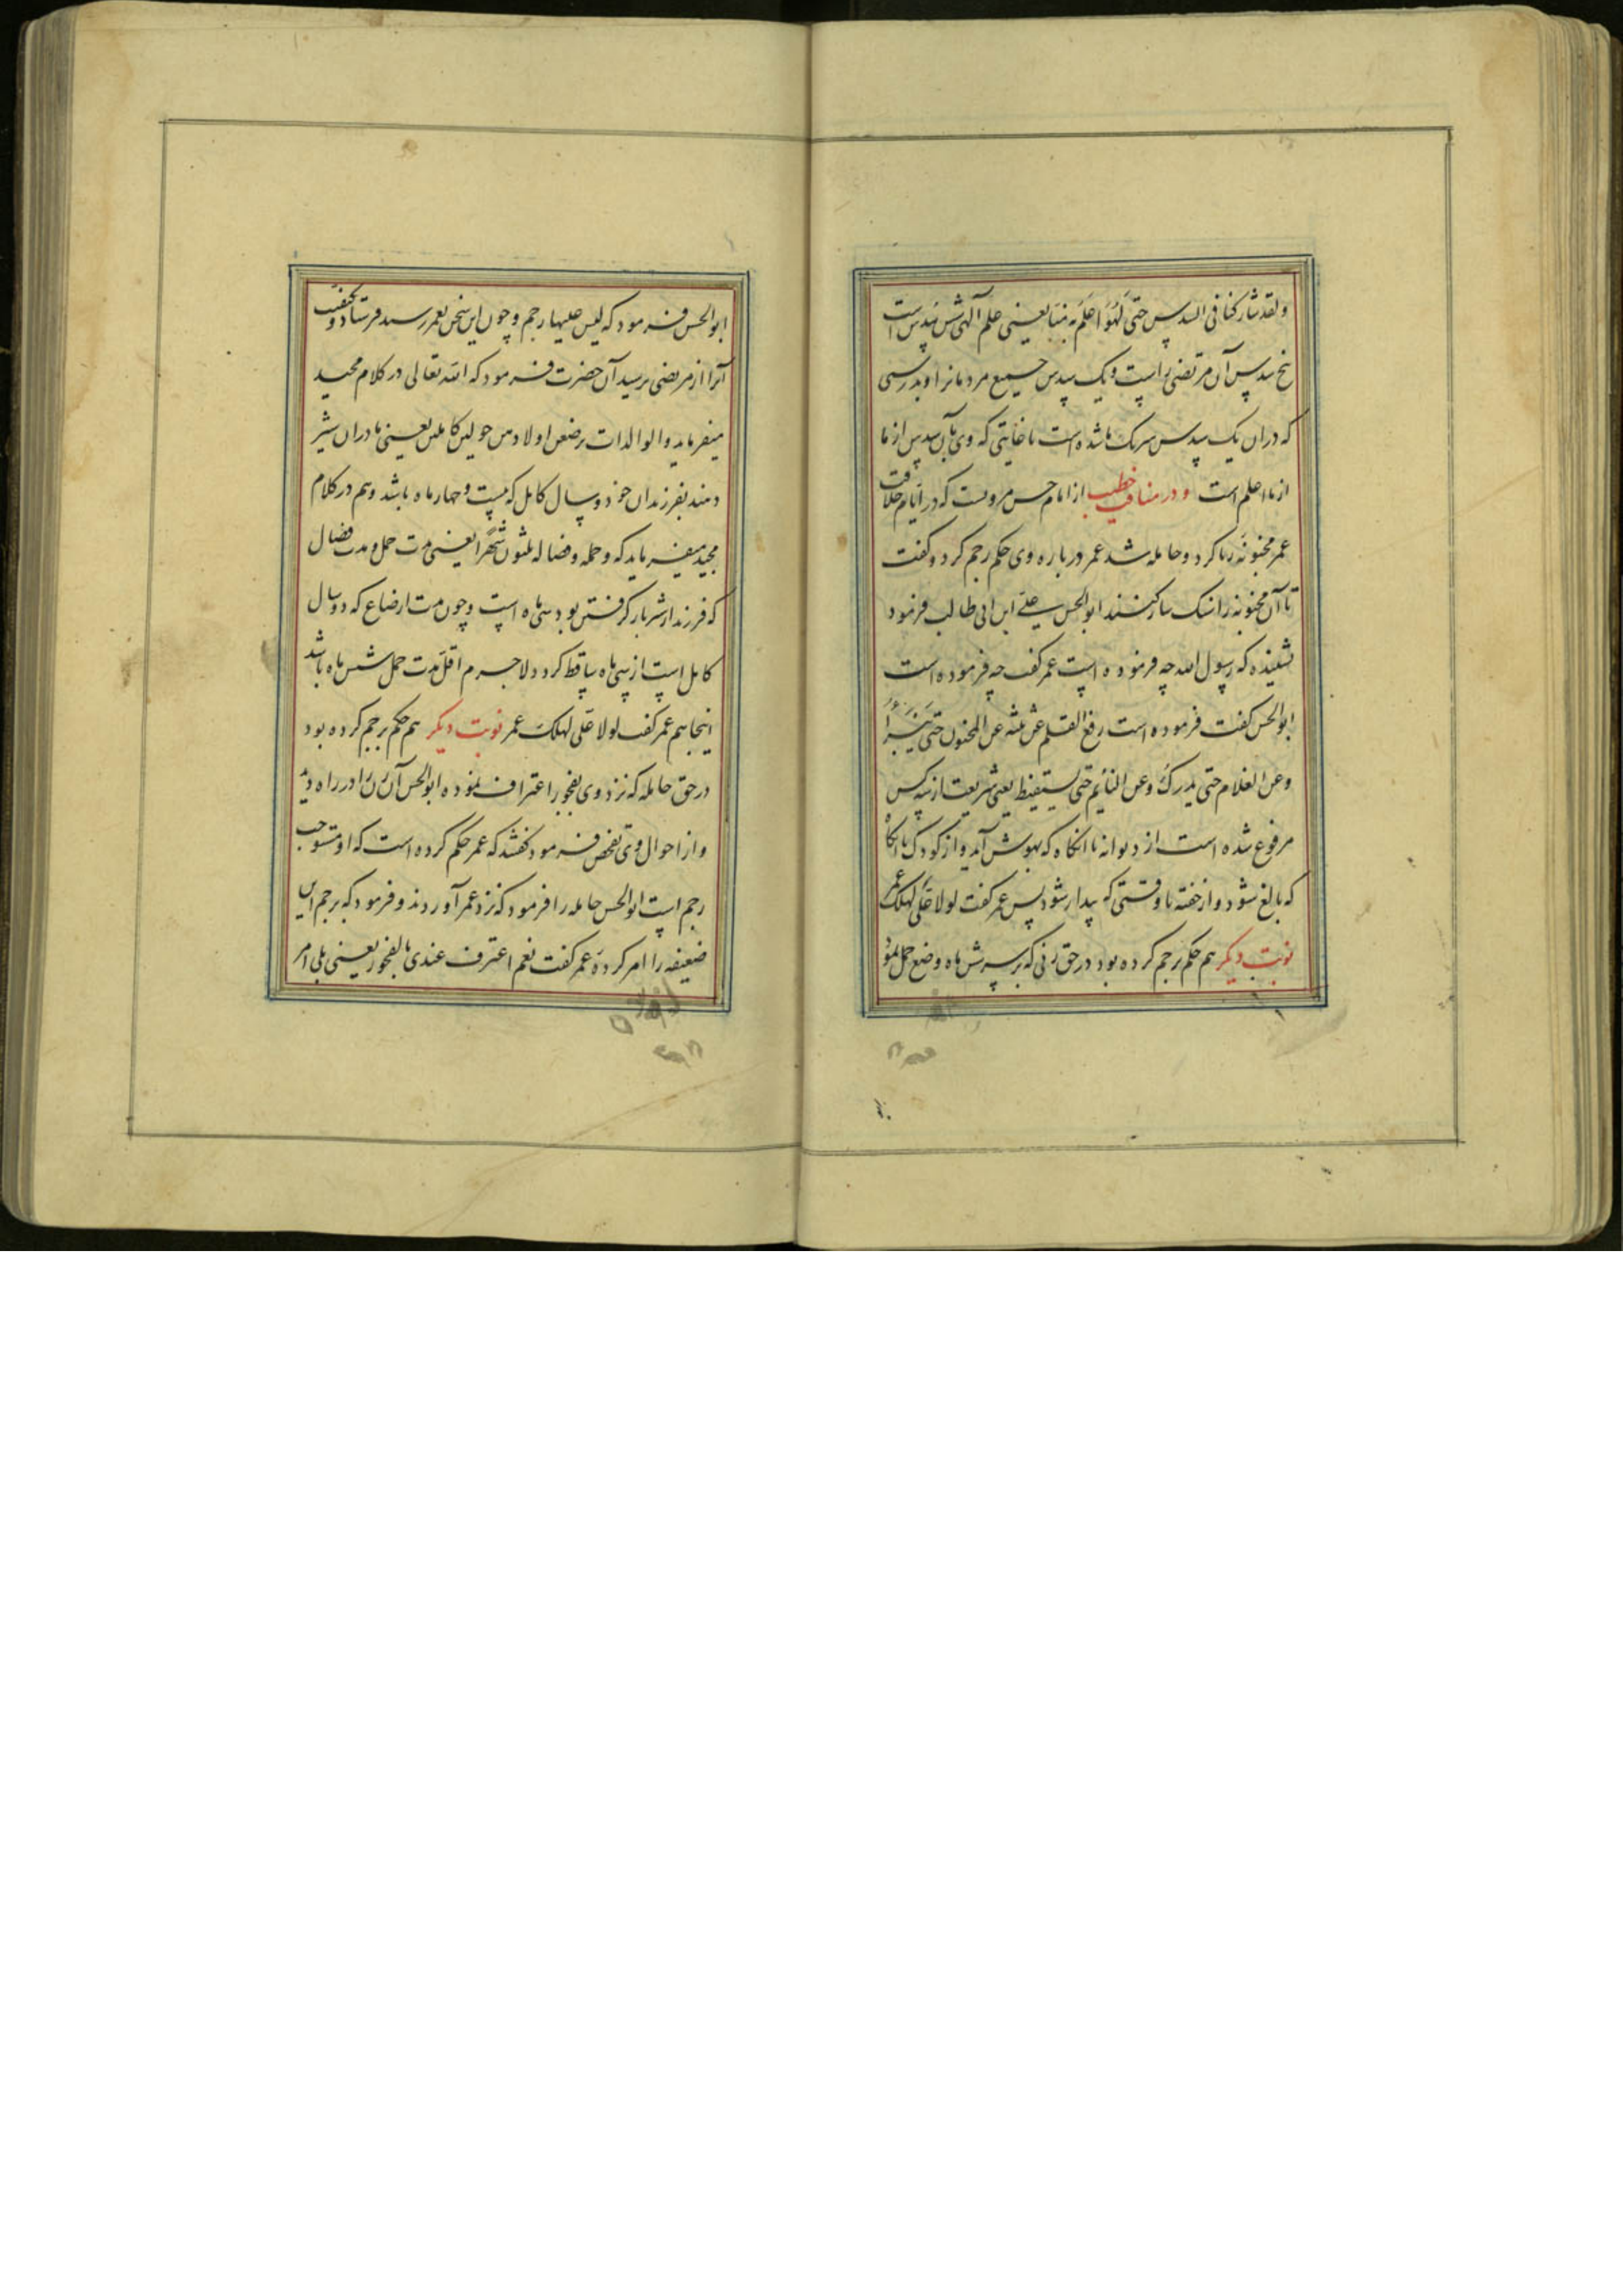 و لقد شارکنا فی السدس حتی لهو اعلم به منا یعنی علم آلهی شش سدس است
پنج سدس آن مرتضی راست و یک سدس جمیع مردمانرا و بدرستی
که دران یک سدس شریک ما شده است تا غایتی که وی بآن سدس از ما
از ما اعلم است و در مناقب خطیب از امام حسن مرویست که در ایام خلافت
عمر مجنونه زنا کرد و حامله شد عمر درباره وی حکم رجم کرد و گفت
تا آن مجنونه را سنکسار کنند ابوالحسن علی ابن ابی طالب فرمود
نشنیده که رسول الله چه فرموده است عمر کفت چه فرموده است
ابوالحسن کفت فرموده است رفع القلم عن ثلثه عن المجنون حتی یبرأ
و عن الغلام حتی یدرک و عن النائم حتی یستیقظ یعنی شریعت از سه کس
مرفوع شده است از دیوانه تا انکاه که بهوش آید و از کودک تا انکاه
که بالغ شود و از خفته تا وقتی که بیدار شود پس عمر کفت لولا علی لهلک عمر
نوبت دیکر هم حکم رجم کرده بود در حق زنی که بر سر شش ماه وضع حمل نمود
ابوالحسن فرمود که لیس علیها رجم و چون این سخن بعمر رسید فرستاد و کیفیت
آنرا از مرتضی پرسید آن حضرت فرمود که الله تعالی در کلام مجید
میفرماید و الوالدات یرضعن اولادهن حولین کاملین یعنی مادران شیر
دهند بفرزندان خود دو سال کامل که بیست و چهار ماه باشد و هم در کلام
مجید میفرماید که و حمله و فصاله ثلثون شهرا یعنی مدت حمل و مدت فصال
که فرزند از شیر باز کرفتن بود سی ماه است و چون مدت ارضاع که دو سال
کامل است از سی ماه ساقط کردد لاجرم اقل مدت حمل شش ماه باشد
اینجا هم عمر کفت لولا علی لهلک عمر نوبت دیکر هم حکم برجم کرده بود
در حق حامله که نزد وی بفجور اعتراف نموده ابوالحسن آن زن را در راه دید
و از احوال وی تفحص فرمود کفتند که عمر حکم کرده است که او مستوجب
رجم است ابوالحسن حامله را فرمود که نزد عمر آوردند و فرمود که برجم این
ضعیفه را امر کردهٔ عمر کفت نعم اعترف عندی بالفجور یعنی بلی امر